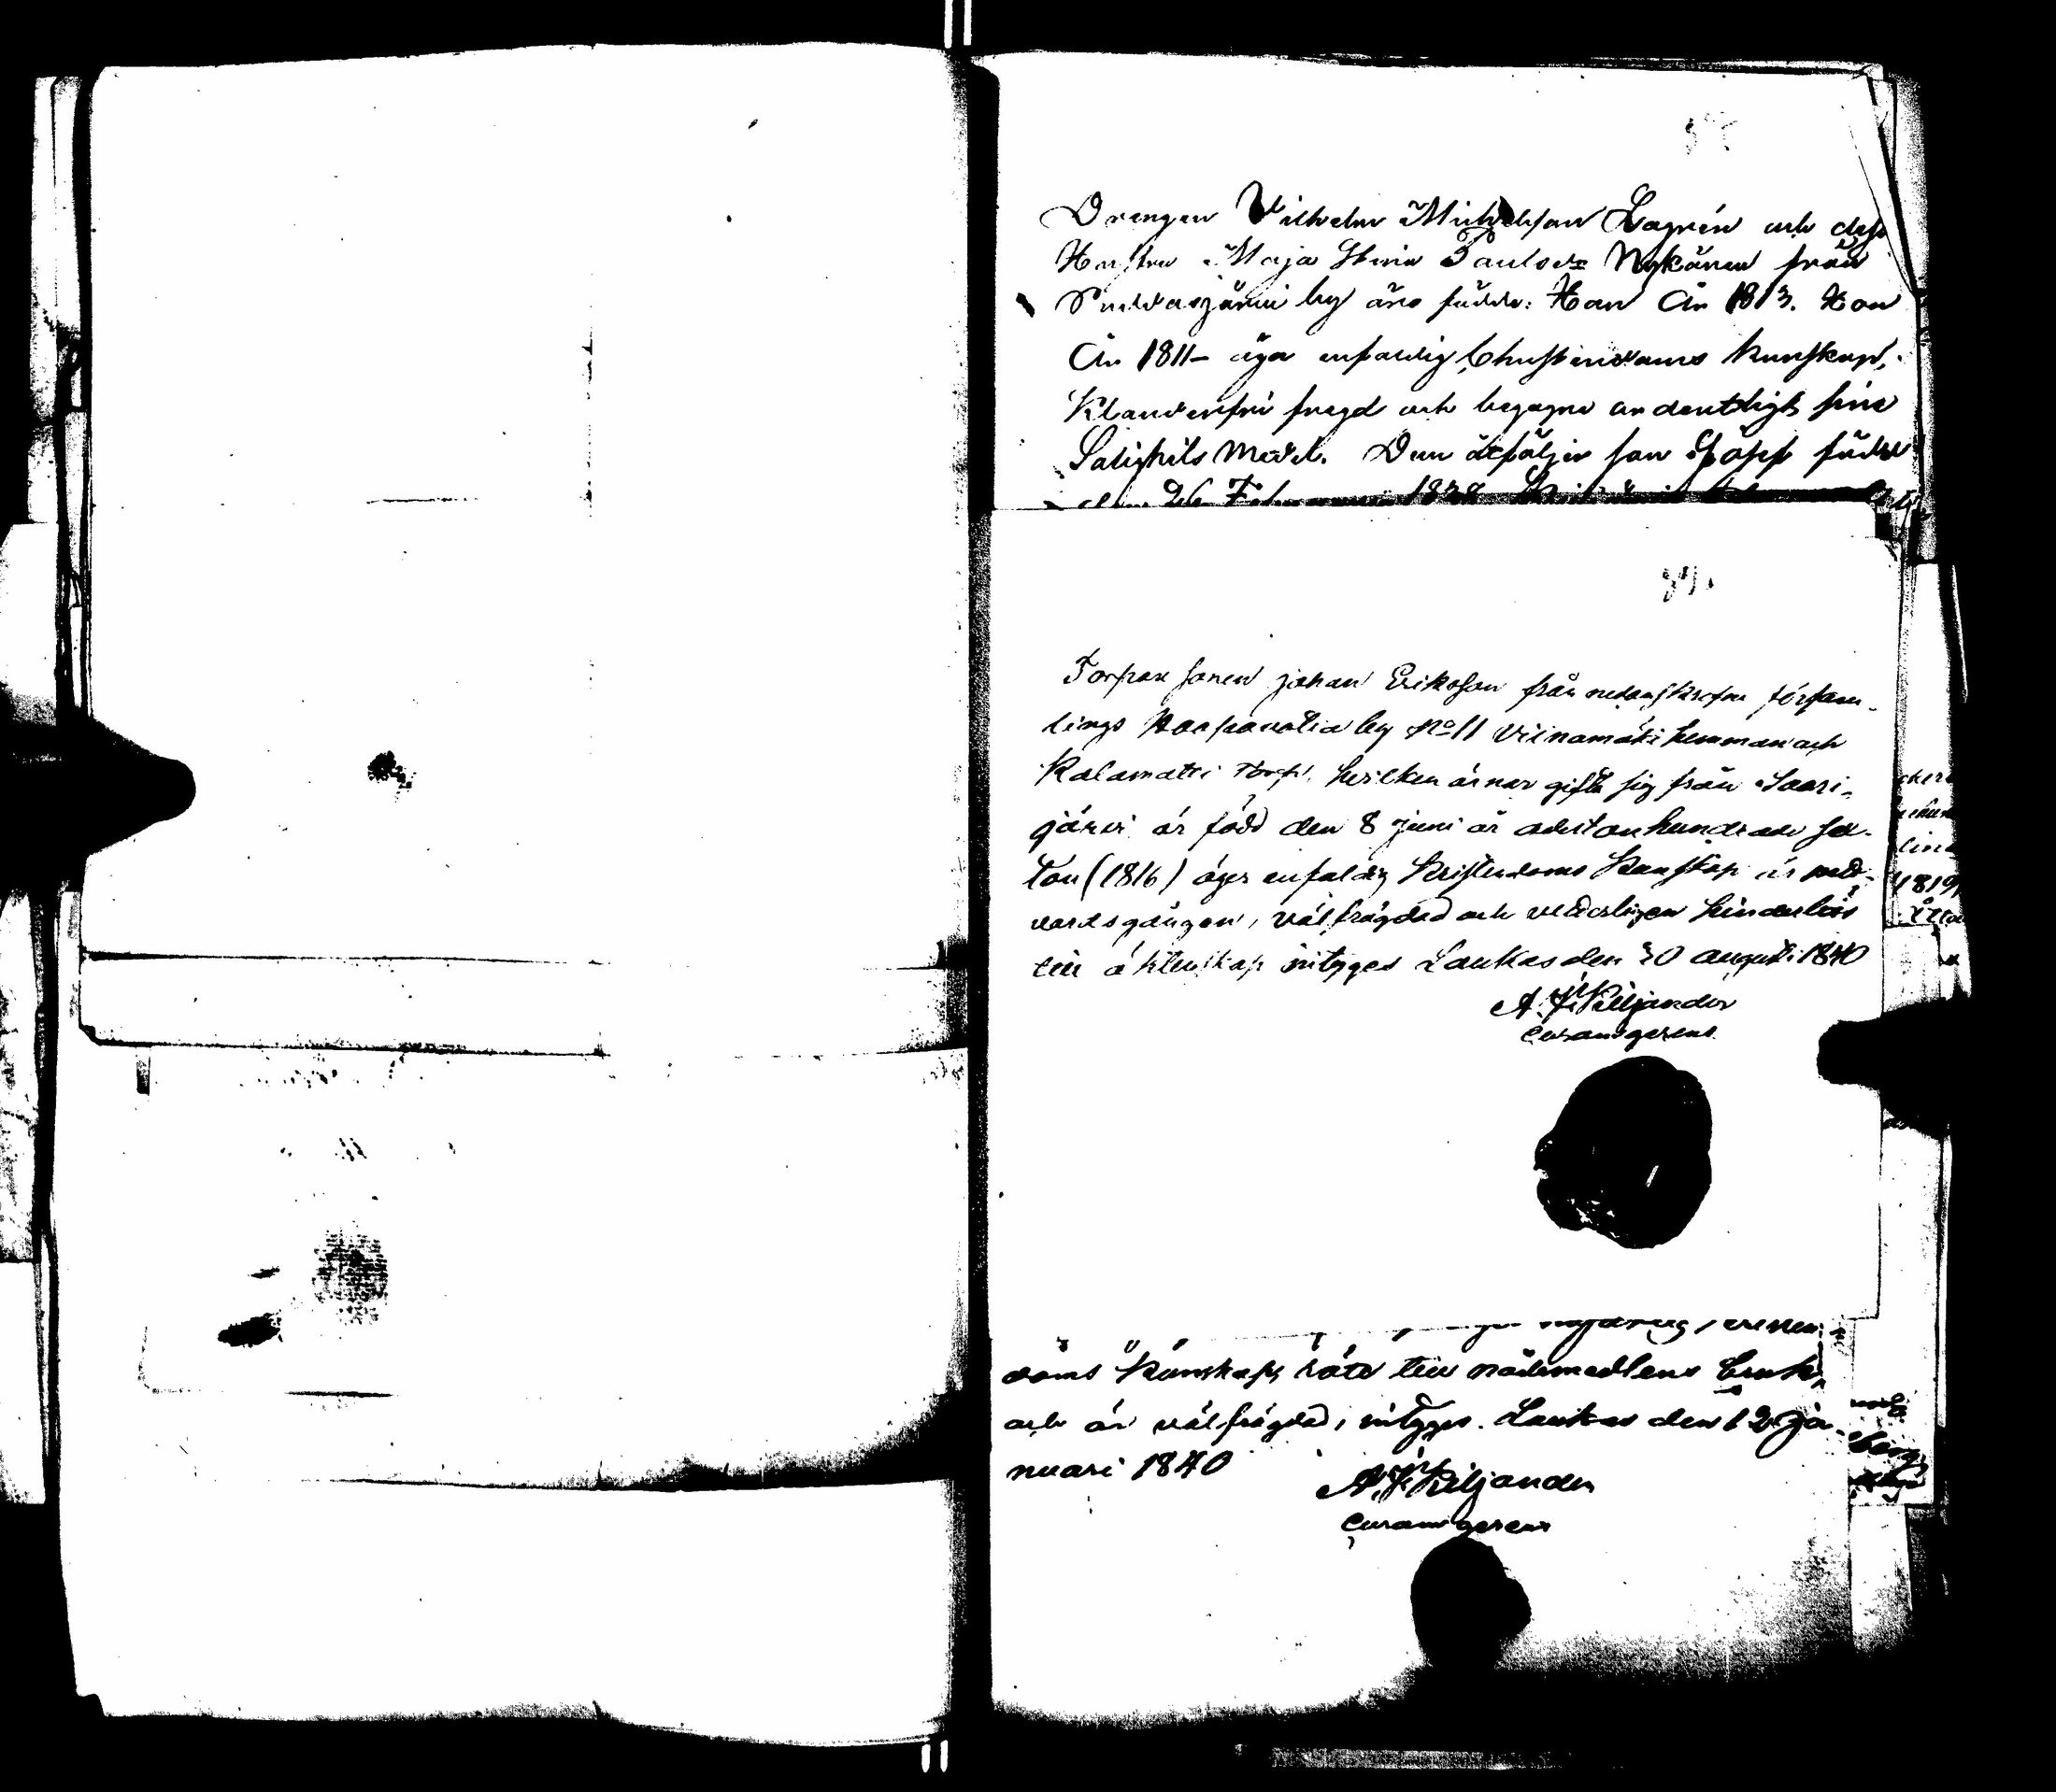 Drengen Vilhelm Michelsson Lagrén och dess
Hustru Maja Stina Paulsdr Nykänen från
by äro födde: Han År 1813. Hon
År 1811 – äga enfaldig Christendoms kunskap,
Klanderfri fregd och begagna ordentligt sina
Salighets Medel. Dem åtföljer son födde
den 26 Februari 1838
Torpare sonen Johan Eriksson från nedanskrefne försam-
lings by No 11 Viinamäki hemman och
Kalamatti Torp, hvilken ärnar gifta sig från Saari-
järvi är född den 8 Juni år adertonhundrade sex-
ton (1816) äger enfaldig Kristendoms kunskap är natt-
vardsgången, välfrägdad och veterligen hinderlös
till äktenskap intyges Laukas den 30 augusti 1840
A. F. Kiljander
Curam gerens.
doms kunskap, rätt till nådemedlens bruk,
och är välfrägdad, intyges. Laukas den 12 Ja-
nuari 1840
A. F. Kiljander
Curam gerens
1819